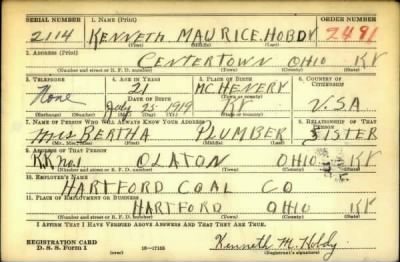 SERIAL NUMBER 1. NAME (Print) ORDER NUMBER
2114 KENNETH MAURICE HOBDY 2491
(First) (Middle) (Last)
2. ADDRESS (Print)
CENTERTOWN OHIO KY
(Number and street or R. F. D. number) (Town) (County) (State)
3. TELEPHONE 4. AGE IN YEARS 5. PLACE OF BIRTH 6. COUNTRY OF CITIZENSHIP
None 21 MCHENERY U.S.A
DATE OF BIRTH (Town or county)
July 25 - 1919 KY
(Exchange) (Number) (Mo.) (Day) (Yr.) (State or country)
7. NAME OF PERSON WHO WILL ALWAYS KNOW YOUR ADDRESS 8. RELATIONSHIP OF THAT PERSON
Mrs BERTHA PLUMBER SISTER
(Mr., Mrs., Miss) (First) (Middle) (Last)
9. ADDRESS OF THAT PERSON
R.R. no.1 OLATON OHIO KY
(Number and street or R. F. D. number) (Town) (County) (State)
10. EMPLOYER'S NAME
HARTFORD COAL CO
11. PLACE OF EMPLOYMENT OR BUSINESS
HARTFORD OHIO KY
(Number and street or R. F. D. number) (Town) (County) (State)
I AFFIRM THAT I HAVE VERIFIED ABOVE ANSWERS AND THAT THEY ARE TRUE.
REGISTRATION CARD
D. S. S. Form 1 (over) 16—17105 Kenneth M. Hobdy